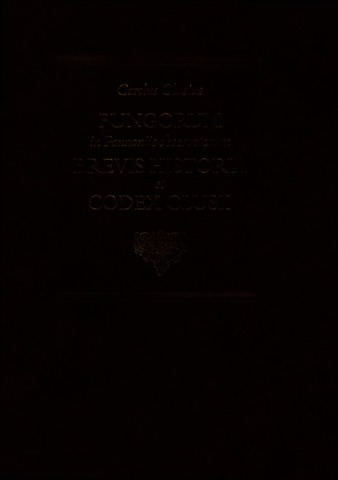 Carolus Clusius
FUNGORUM
in Pannoniis observatorum
BREVIS HISTORIA
et
CODEX CLUSII